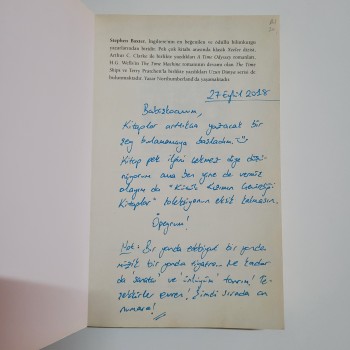 Stephen Baxter, İngiltere'nin en beğenilen ve ödüllü bilimkurgu
yazarlarından biridir. Pek çok kitabı arasında klasik Xeelee dizisi,
Arthur C. Clarke ile birlikte yazdıkları A Time Odyssey romanları,
H.G. Wells'in The Time Machine romanının devamı olan The Time
Ships ve Terry Pratchett'la birlikte yazdıkları Uzun Dünya serisi de
bulunmaktadır. Yazar Northumberland'da yaşamaktadır.
27 Eylül 2018
Babişkocuğum,
Kitaplar arttıkça yazacak bir
şey bulamamaya başladım.
Kitap pek ilgini çekmez diye düşü-
nüyorum ama ben yine de vermiş
olayım da "Küçük Kızımın
Kitaplar" eksik kalmasın.
Öpüyorum!
Not: Bir yanda edebiyat bir yanda
müzik bir yanda tiyatro... Ne kadar
da 'sanatçı' ve
Şimdi sırada on
numara!